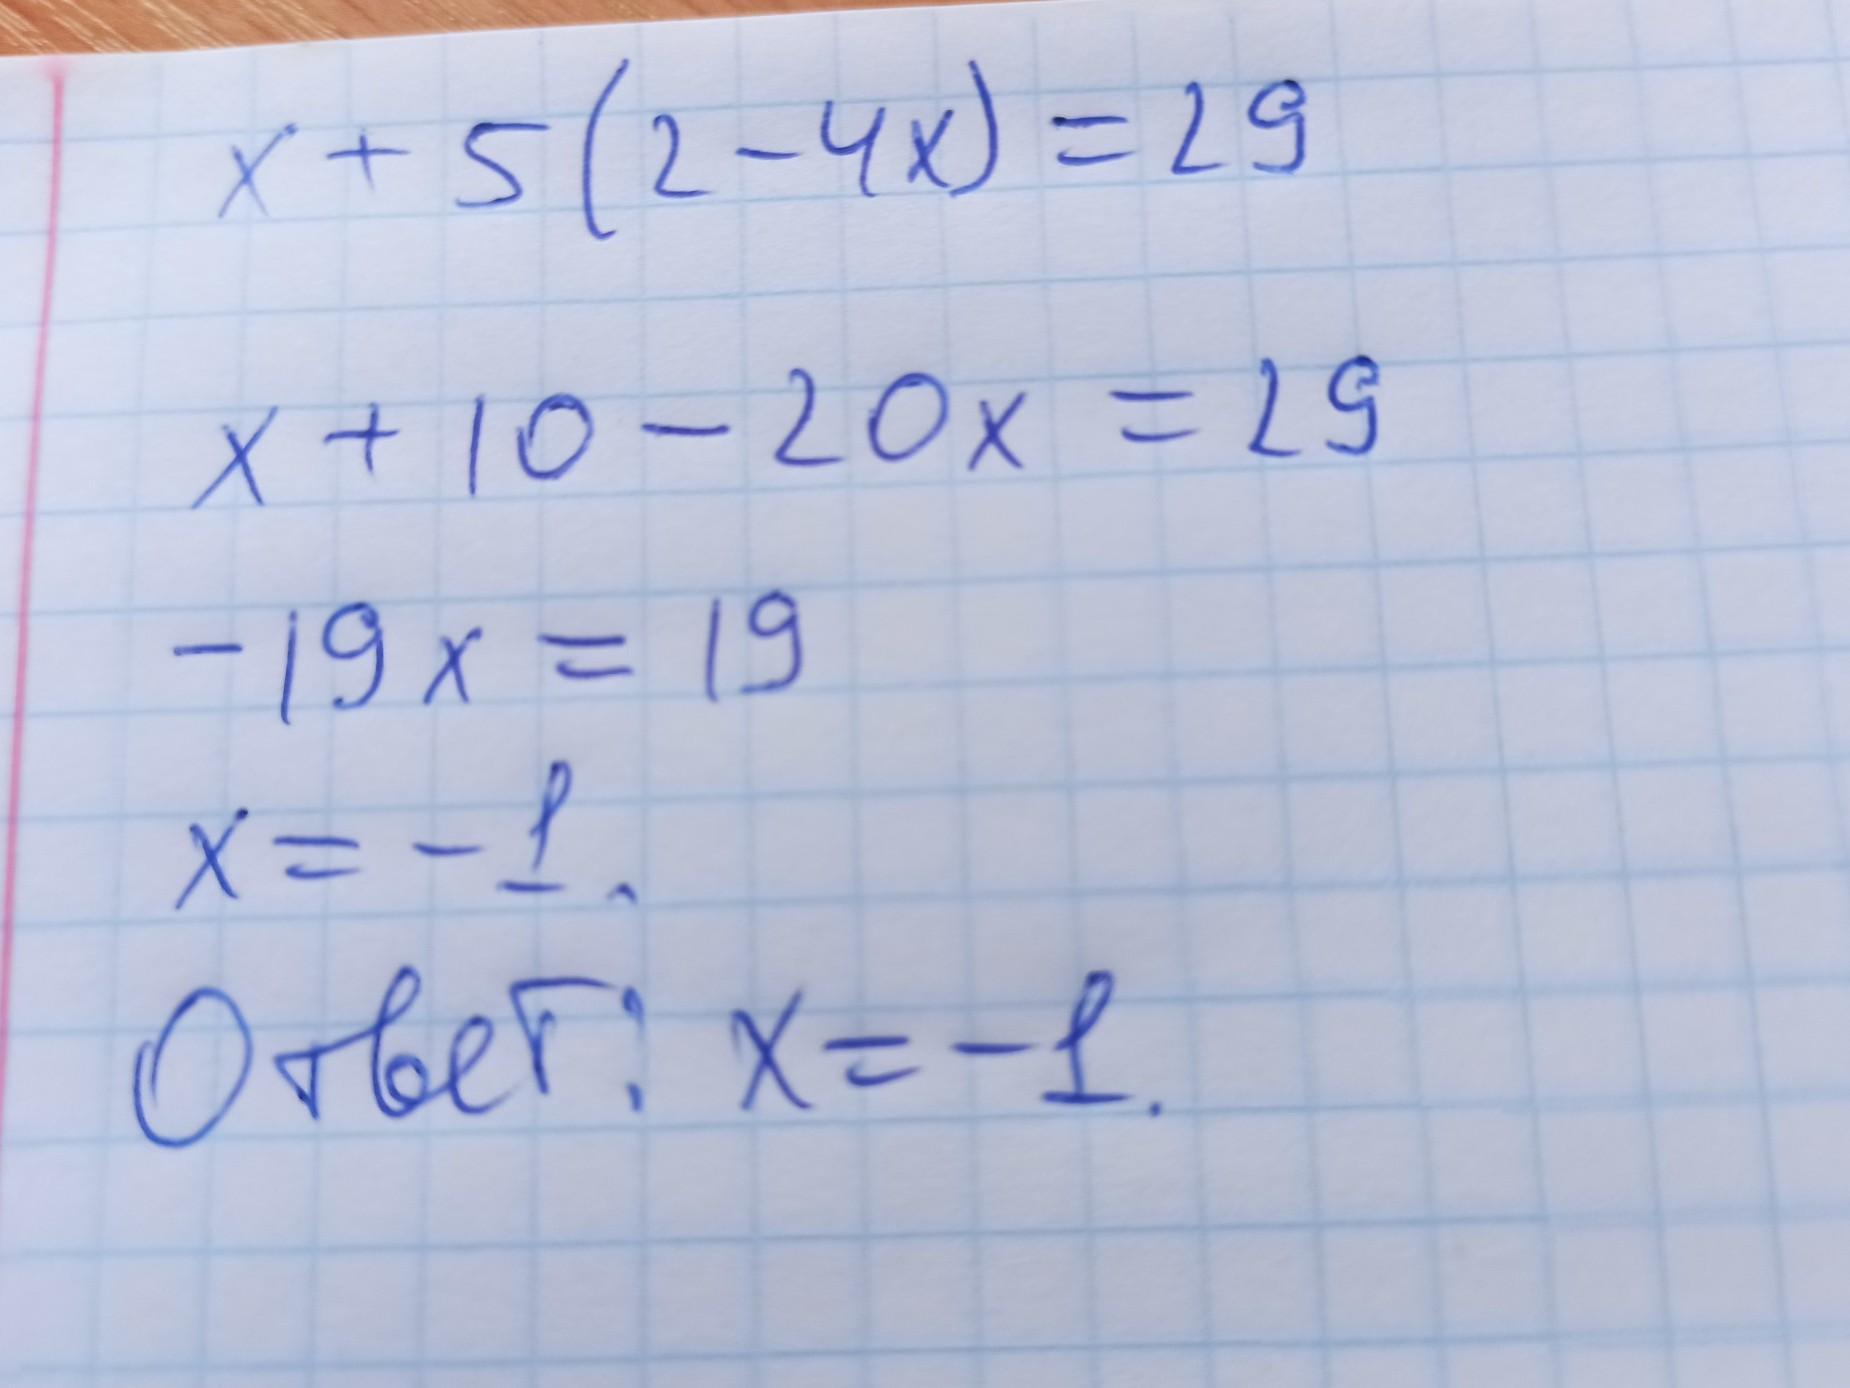 x + 5(2 - 4x) = 29
x + 10 - 20x = 29
-19x = 19
x = -1.
Ответ: x = -1.